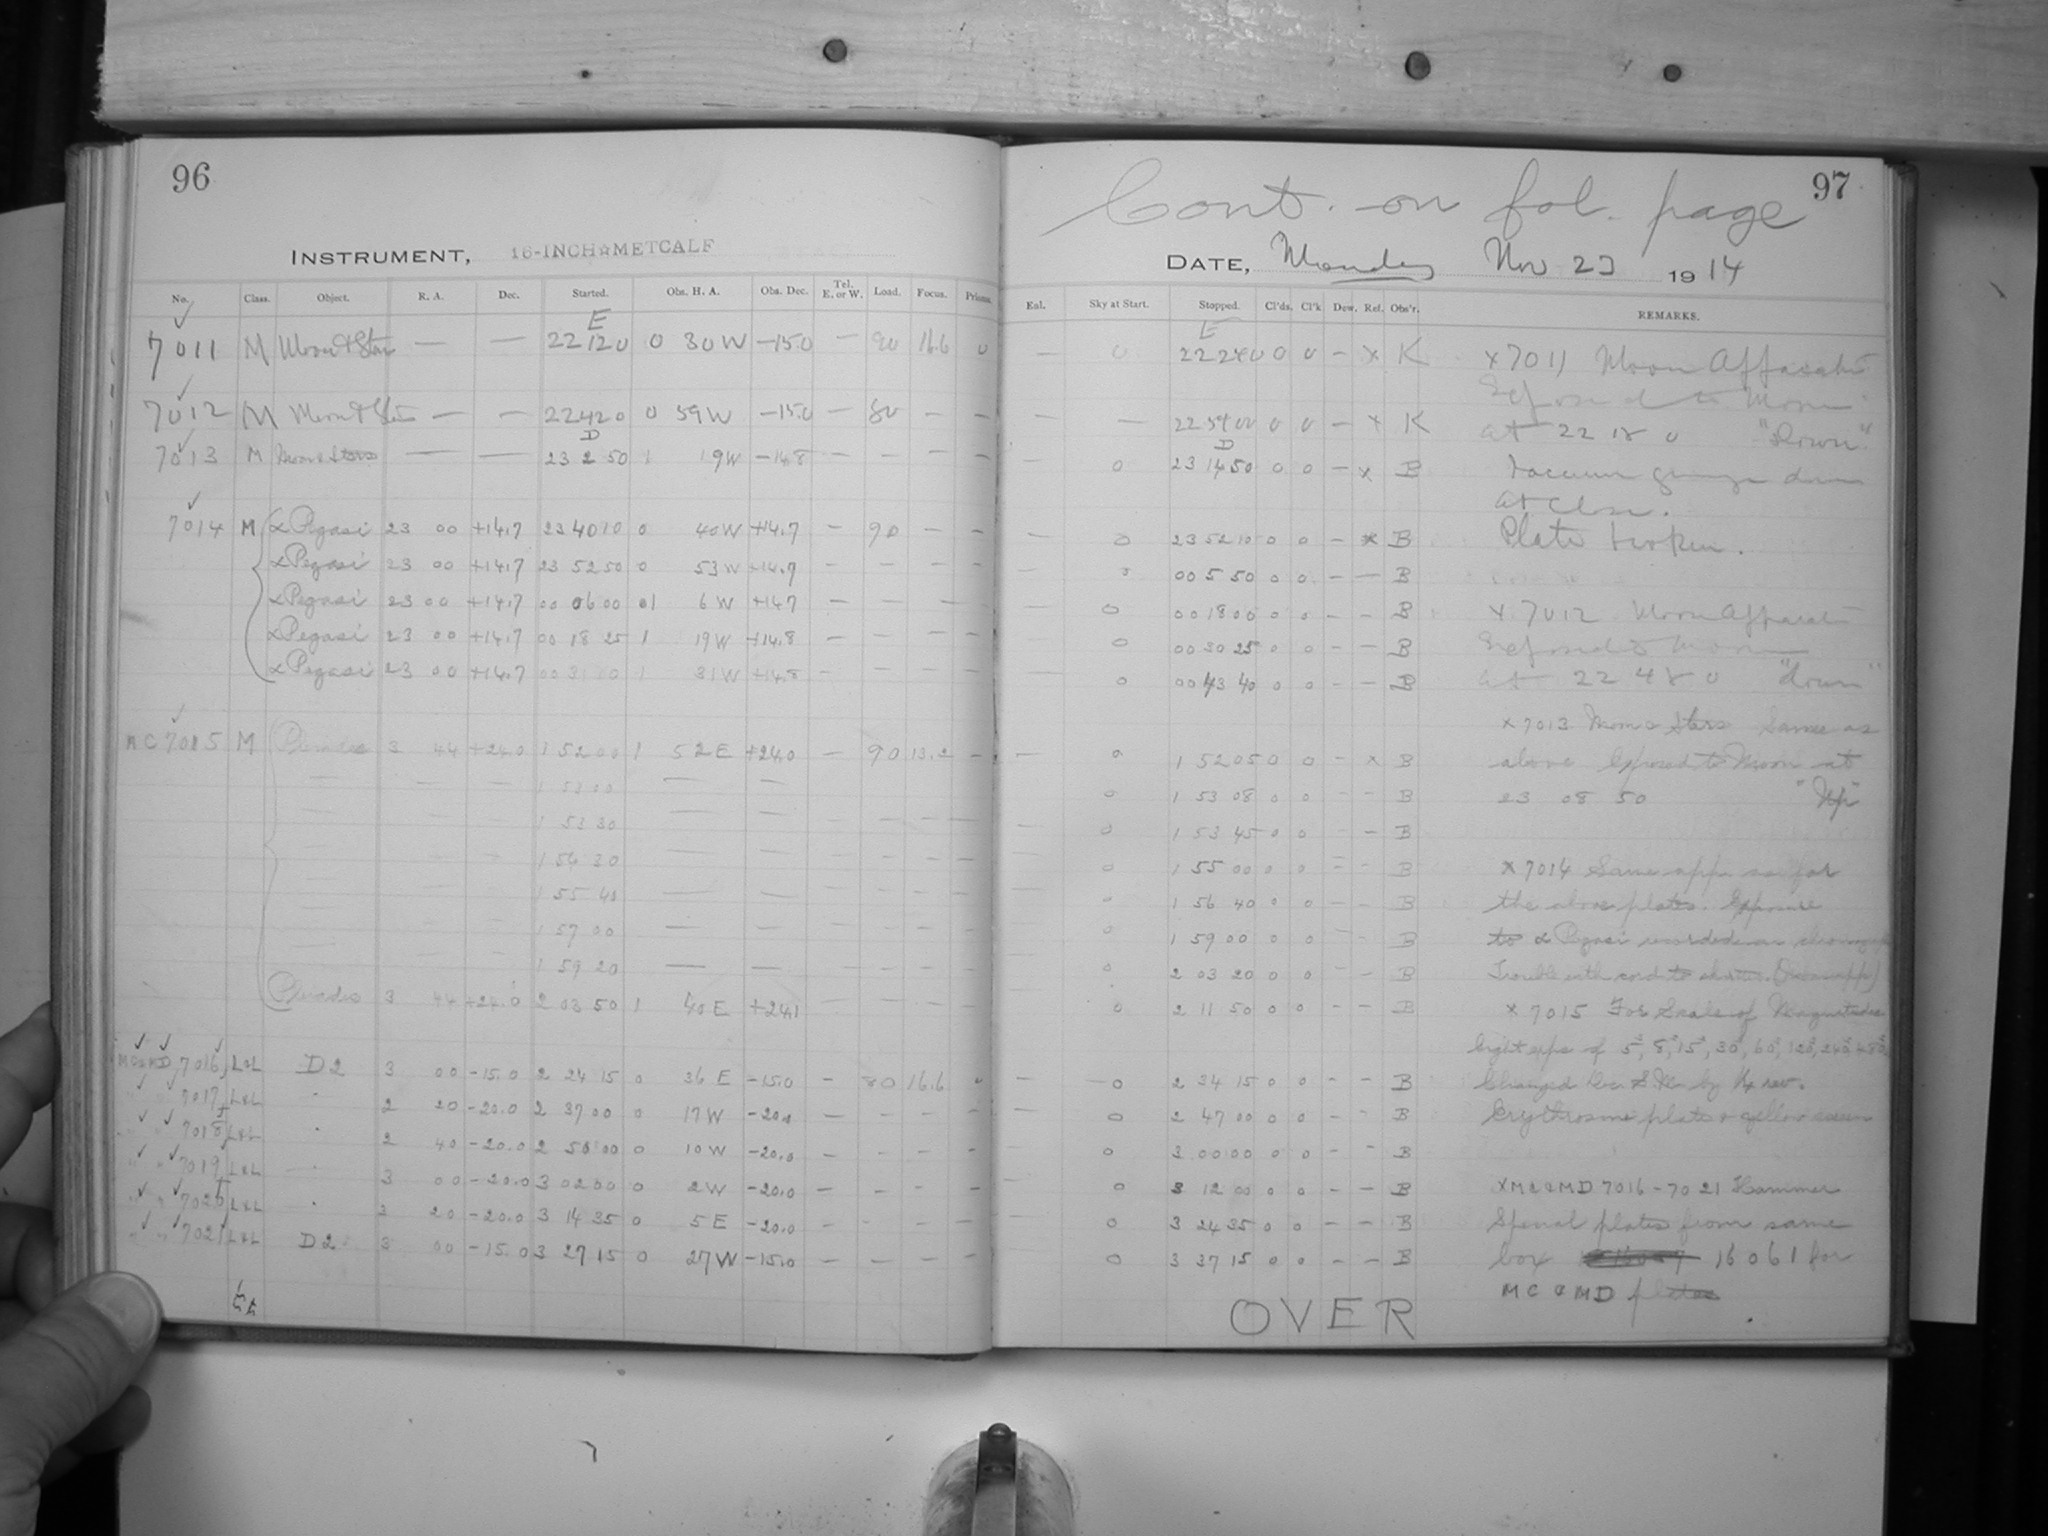 96
INSTRUMENT, 16-INCH☆METCALF
No. Class. Object. R. A. Dec. Started. Obs. H. A. Obs. Dec. Tel. E. or W. Load. Focus. Prisms.
E
7011 M Moon & Stars — — 22 12 0 0 30 W —15.0 — 90 16.6 0
7012 M Moon & Stars — — 22 42 0 0 59 W —15.0 — 80 — —
D
7013 M Moon & Stars — — 23 2 50 1 19 W —14.8 — — — —
7014 M α Pegasi 23 00 +14.7 23 40 10 0 40 W +14.7 — 90 — —
α Pegasi 23 00 +14.7 23 52 50 0 53 W +14.7 — — — —
α Pegasi 23 00 +14.7 00 06 00 01 6 W +14.7 — — — —
α Pegasi 23 00 +14.7 00 18 25 1 19 W +14.8 — — — —
α Pegasi 23 00 +14.7 00 31 00 1 31 W +14.8 — — — —
MC 7015 M Pleiades 3 44 +24.0 1 52 00 1 52 E +24.0 — 90 13.2 —
1 53 00
1 53 30
1 54 30
1 55 40
1 57 00
1 59 20
Pleiades 3 44 +24.0 2 03 50 1 40 E +24.1 — — — —
MC & MD 7016 L&L D2 3 00 -15.0 2 24 15 0 36 E -15.0 — 80 16.6
" " 7017 L&L " 2 20 -20.0 2 37 00 0 17 W -20.0 — — — —
" " 7018 L&L " 2 40 -20.0 2 50 00 0 10 W -20.0 — — — —
" " 7019 L&L " 3 00 -20.0 3 02 00 0 2 W -20.0 — — — —
" " 7020 L&L " 3 20 -20.0 3 14 35 0 5 E -20.0 — — — —
" " 7021 L&L D2 3 00 -15.0 3 27 15 0 27 W -15.0 — — — —
97
Cont. on fol. page
DATE, Monday Nov 23 1914
Eal. Sky at Start. Stopped. Cl'ds. Cl'k Dew. Ref. Obs'r. REMARKS.
E
— 0 22 24 0 0 0 — x K x 7011 Moon Apparatus
Exposed to Moon
— — 22 54 00 0 0 — x K at 22 18 0 "Down"
D
0 23 14 50 0 0 — x B Vacuum gauge down
at close.
— 0 23 52 10 0 0 — x B Plate broken.
0 00 5 50 0 0 — — B
0 00 18 00 0 0 — — B x 7012 Moon Apparatus
0 00 30 25 0 0 — — B Exposed to Moon
0 00 43 40 0 0 — — B at 22 48 0 "Down"
x 7013 Moon & Stars Same as
0 1 52 05 0 0 — x B above Exposed to Moon at
0 1 53 08 0 0 — — B 23 08 50 "Up"
0 1 53 45 0 0 — — B
0 1 55 00 0 0 — — B x 7014 Same app. as for
0 1 56 40 0 0 — — B the above plates. Exposure
0 1 59 00 0 0 — — B to α Pegasi recorded on
0 2 03 20 0 0 — — B Trouble with cord to shutter.
0 2 11 50 0 0 — — B x 7015 For Scale of Magnitudes
Eight exps of 5ˢ, 8ˢ, 15ˢ, 30ˢ, 60ˢ, 120ˢ, 240ˢ, 480ˢ
— 0 2 34 15 0 0 — — B Changed Dec. by ¼ rev.
0 2 47 00 0 0 — — B Erythrosine plate & yellow screen
0 3 00 00 0 0 — — B
0 3 12 00 0 0 — — B x MC & MD 7016 - 7021 Hammer
0 3 24 35 0 0 — — B Special plates from same
0 3 37 15 0 0 — — B box 16061 for
MC & MD plates
OVER